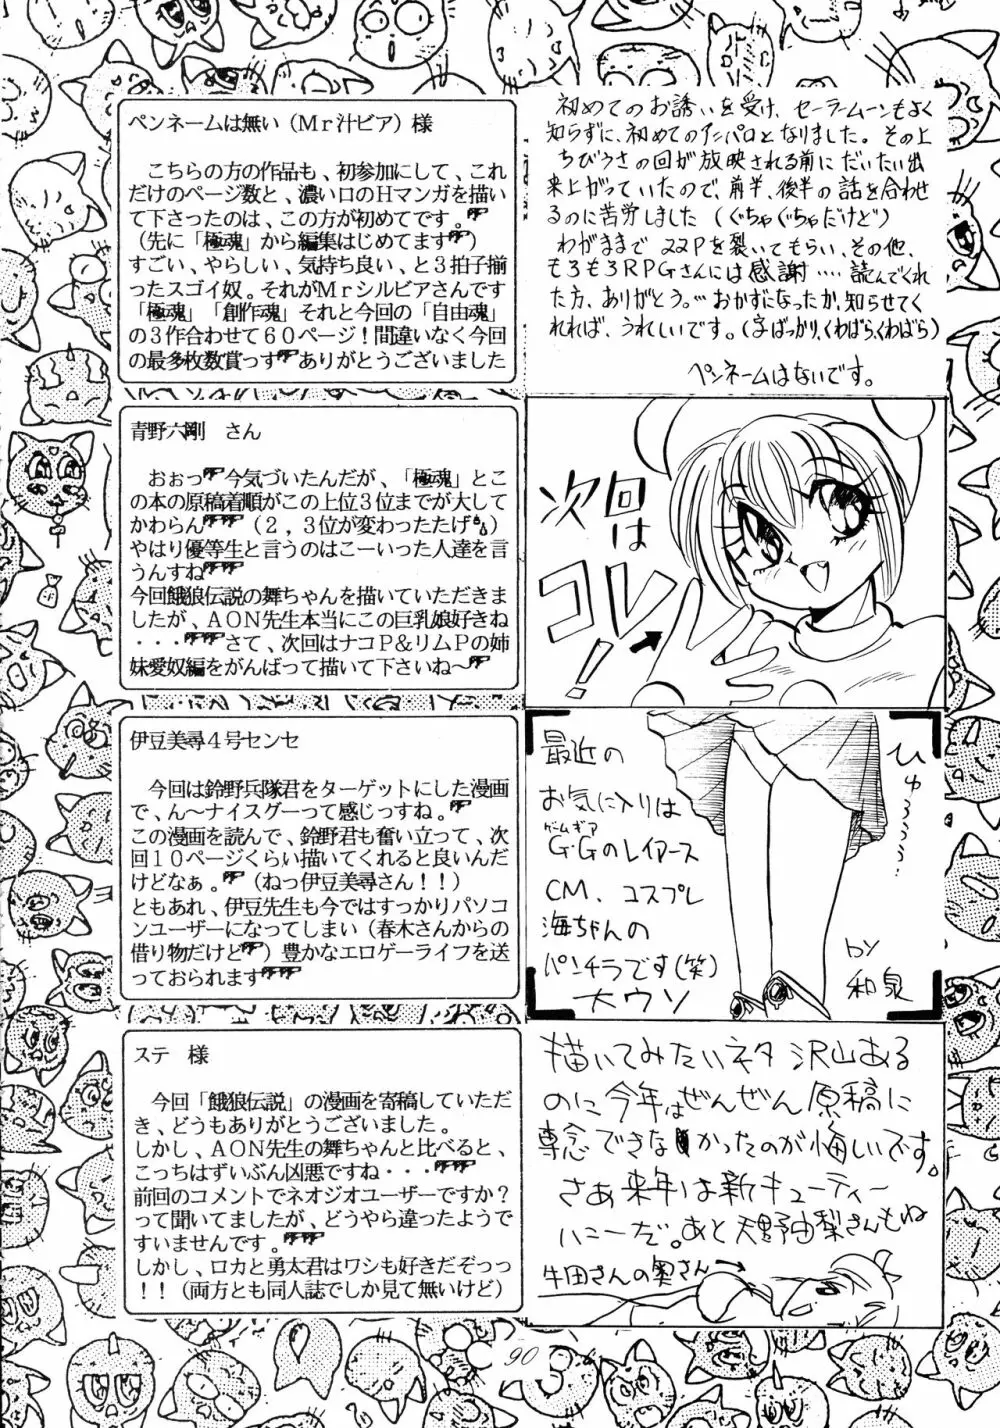 ペンネームは無い（Ｍｒ汁ビア）様
こちらの方の作品も、初参加にして、これ
だけのページ数と、濃い口のＨマンガを描い
て下さったのは、この方が初めてです。
（先に「極魂」から編集はじめてます）
すごい、やらしい、気持ち良い、と３拍子揃
ったスゴイ奴。それがＭｒシルビアさんです
「極魂」「創作魂」それと今回の「自由魂」
の３作合わせて６０ページ！間違いなく今回
の最多枚数賞っすありがとうございました
初めてのお誘いを受け、セーラームーンもよく
知らずに、初めてのアンパロとなりました。その上
ちびうさの回が放映される前にだいたい出
来上がっていたので、前半、後半の話を合わせ
るのに苦労しました（ぐちゃぐちゃだけど）
わがままで22Pを裂いてもらい、その他、
もろもろRPGさんには感謝‥‥読んでくれ
た方、ありがとう。‥おかずになったか、知らせてく
れれば、うれしいです。（字ばっかり、くわばらくわばら）
ペンネームはないです。
青野六剛　さん
おぉっ今気づいたんだが、「極魂」とこ
の本の原稿着順がこの上位３位までが大して
かわらん（２，３位が変わったたげ）
やはり優等生と言うのはこーいった人達を言
うんすね
今回餓狼伝説の舞ちゃんを描いていただきま
したが、ＡＯＮ先生本当にこの巨乳娘好きね
・・・さて、次回はナコＰ＆リムＰの姉
妹愛奴編をがんばって描いて下さいね～
次回は
コレ！
伊豆美尋４号センセ
今回は鈴野兵隊君をターゲットにした漫画
で、ん～ナイスグーって感じっすね。
この漫画を読んで、鈴野君も奮い立って、次
回１０ページくらい描いてくれると良いんだ
けどなぁ。（ねっ伊豆美尋さん！！）
ともあれ、伊豆先生も今ではすっかりパソコ
ンユーザーになってしまい（春木さんからの
借り物だけど）豊かなエロゲーライフを送
っておられます
最近の
お気に入りは
ゲームギア
G・Gのレイアース
CM、コスプレ
海ちゃんの
パンチラです（笑）
大ウソ
by
和泉
ステ　様
今回「餓狼伝説」の漫画を寄稿していただ
き、どうもありがとうございました。
しかし、ＡＯＮ先生の舞ちゃんと比べると、
こっちはずいぶん凶悪ですね・・・
前回のコメントでネオジオユーザーですか？
って聞いてましたが、どうやら違ったようで
すいませんです。
しかし、ロカと勇太君はワシも好きだぞっっ
！！（両方とも同人誌でしか見て無いけど）
描いてみたいネタ 沢山ある
のに今年はぜんぜん原稿に
専念できなかったのが悔しいです。
さあ来年は新キューティー
ハニーだ。あと天野由梨さんもね
牛田さんの奥さん→
90